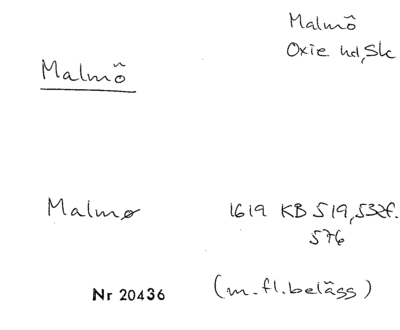 Malmö
Oxie hd, Sk
Malmö
Malmø 1619 KB 519, 532f.
576
Nr 20436 (m. fl. belägg)